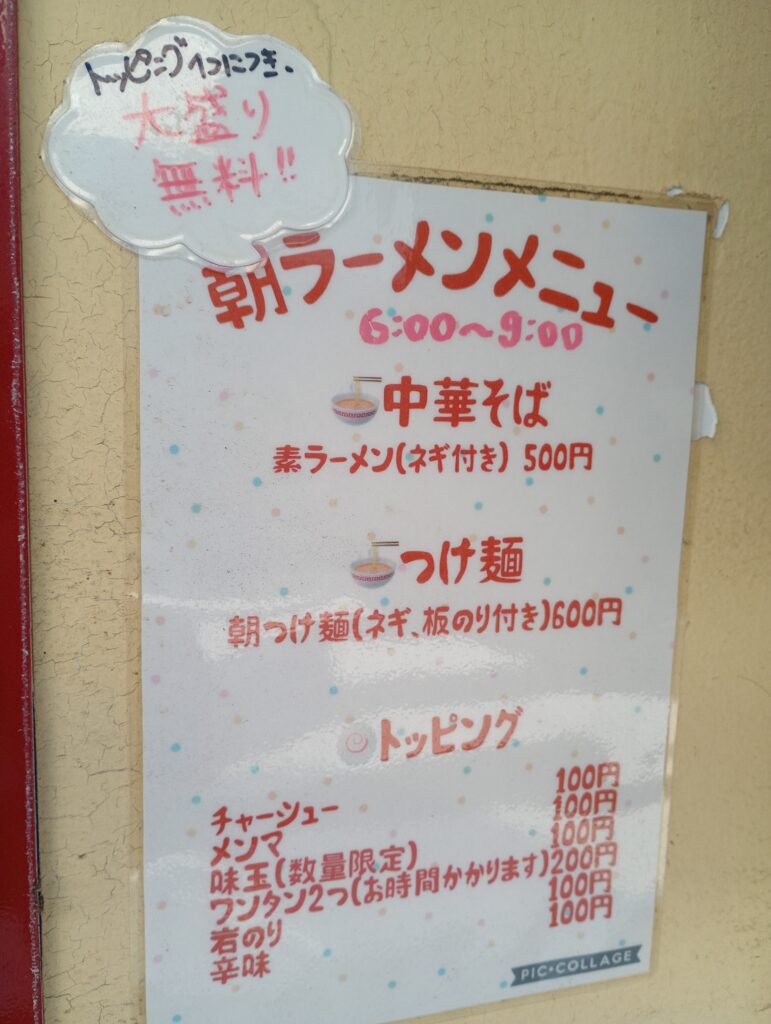 トッピング1つにつき、
大盛り
無料!!
朝ラーメンメニュー
6:00～9:00
中華そば
素ラーメン(ネギ付き) 500円
つけ麺
朝つけ麺(ネギ、板のり付き)600円
トッピング
チャーシュー 100円
メンマ 100円
味玉(数量限定) 100円
ワンタン2つ(お時間かかります)200円
岩のり 100円
辛味 100円
PIC•COLLAGE